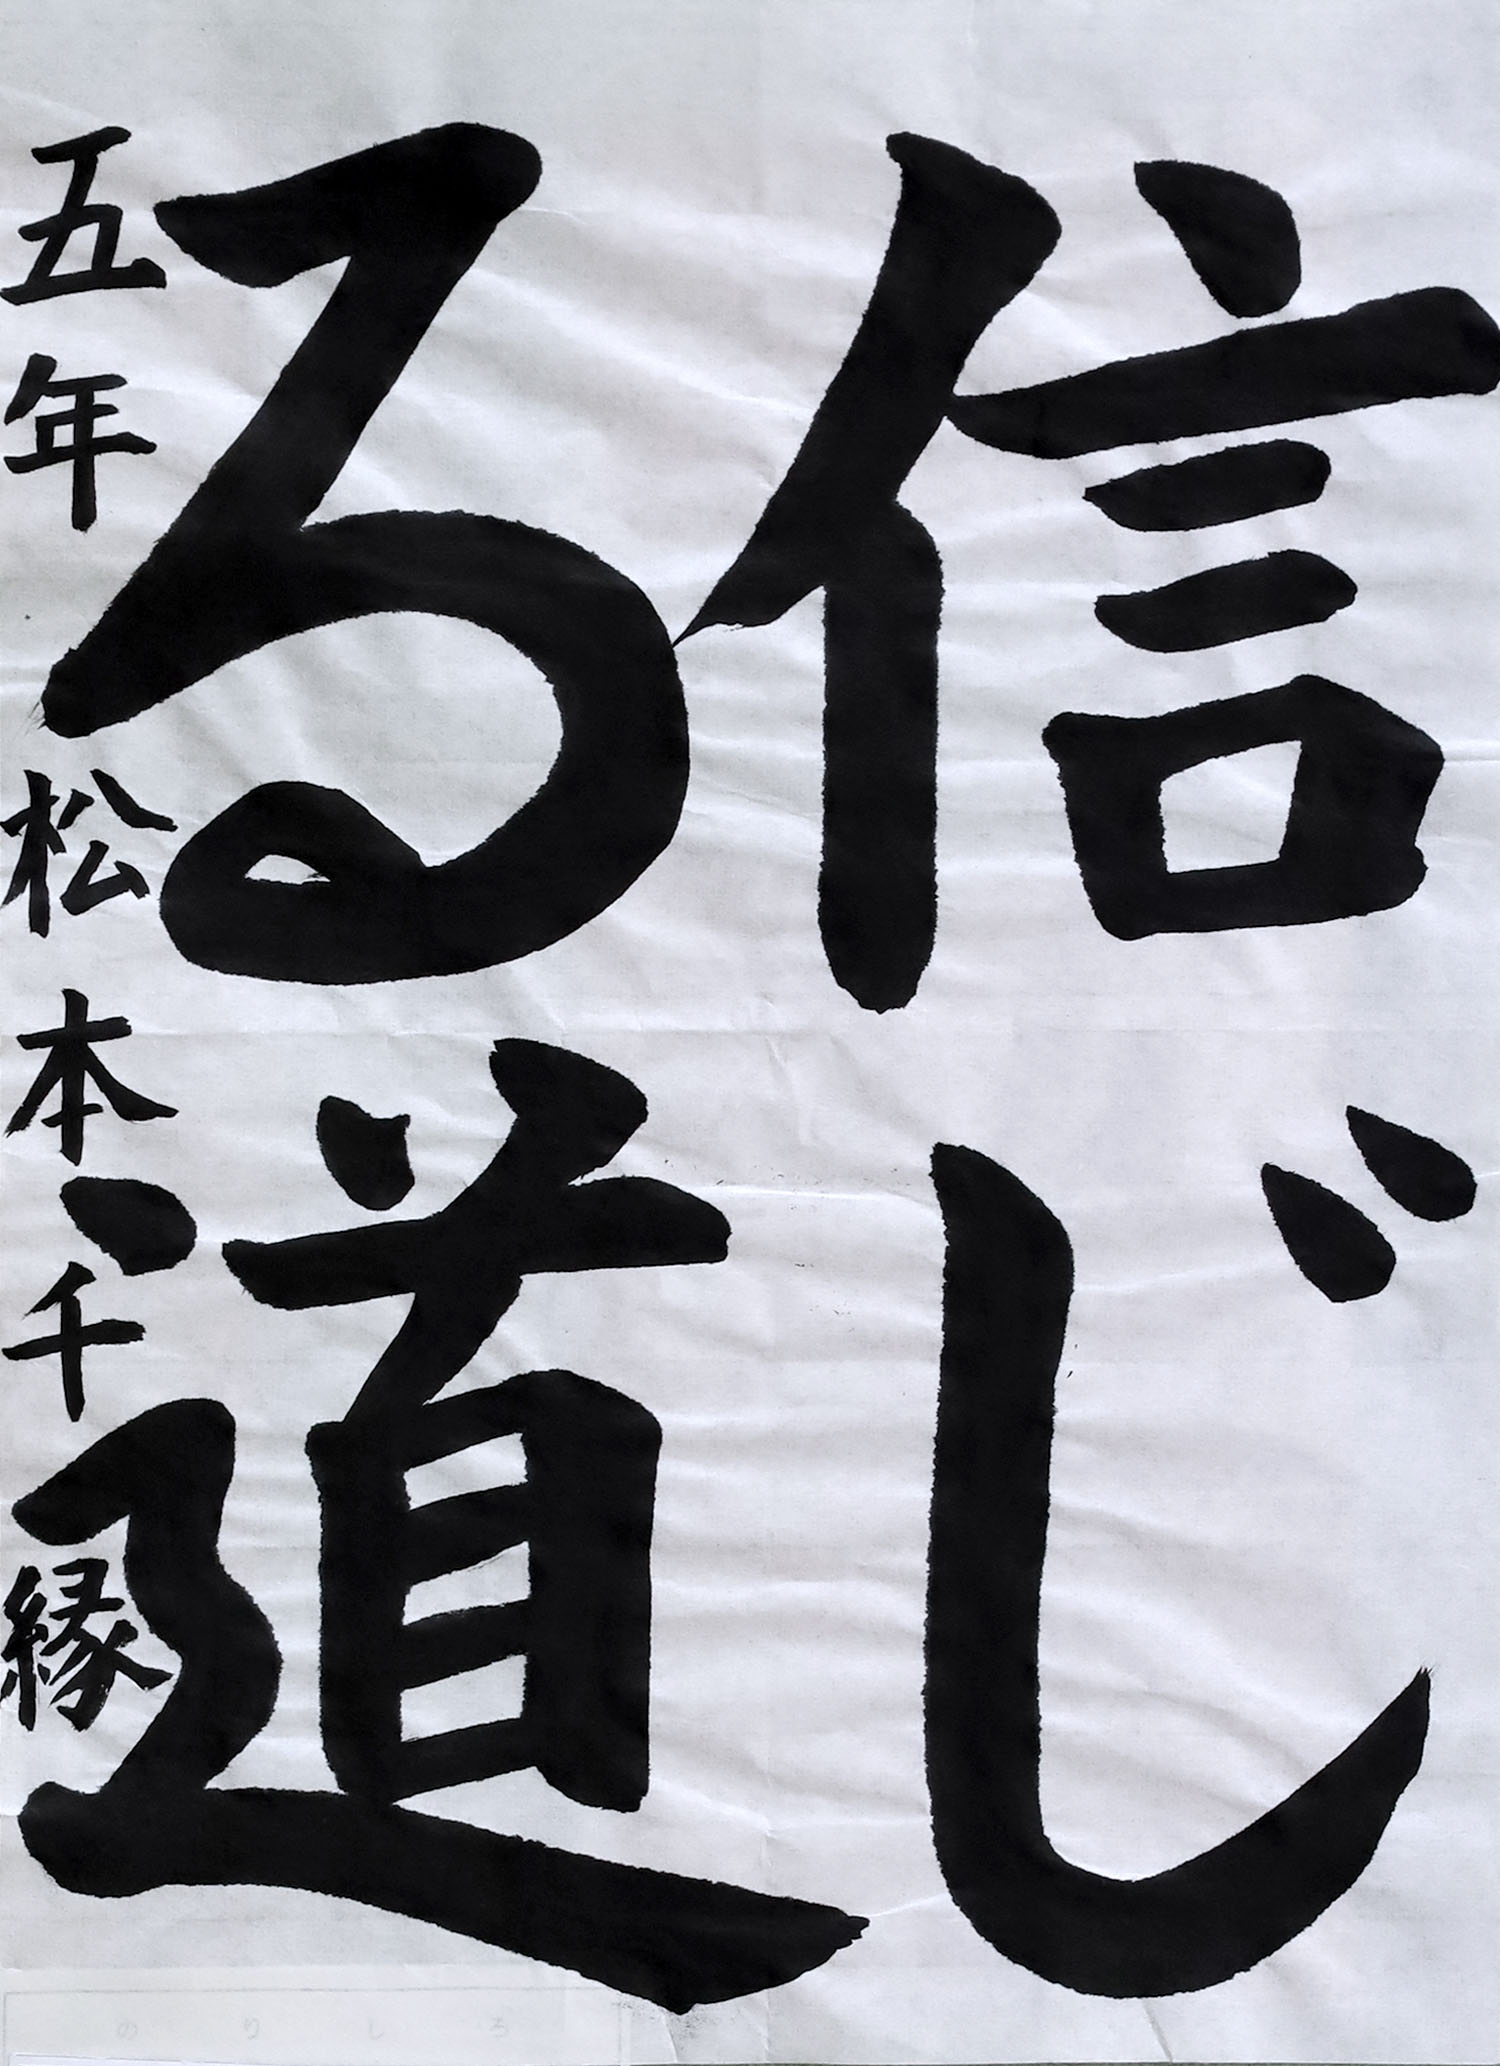 信じ
る道
五年 松本千縁
のりしろ